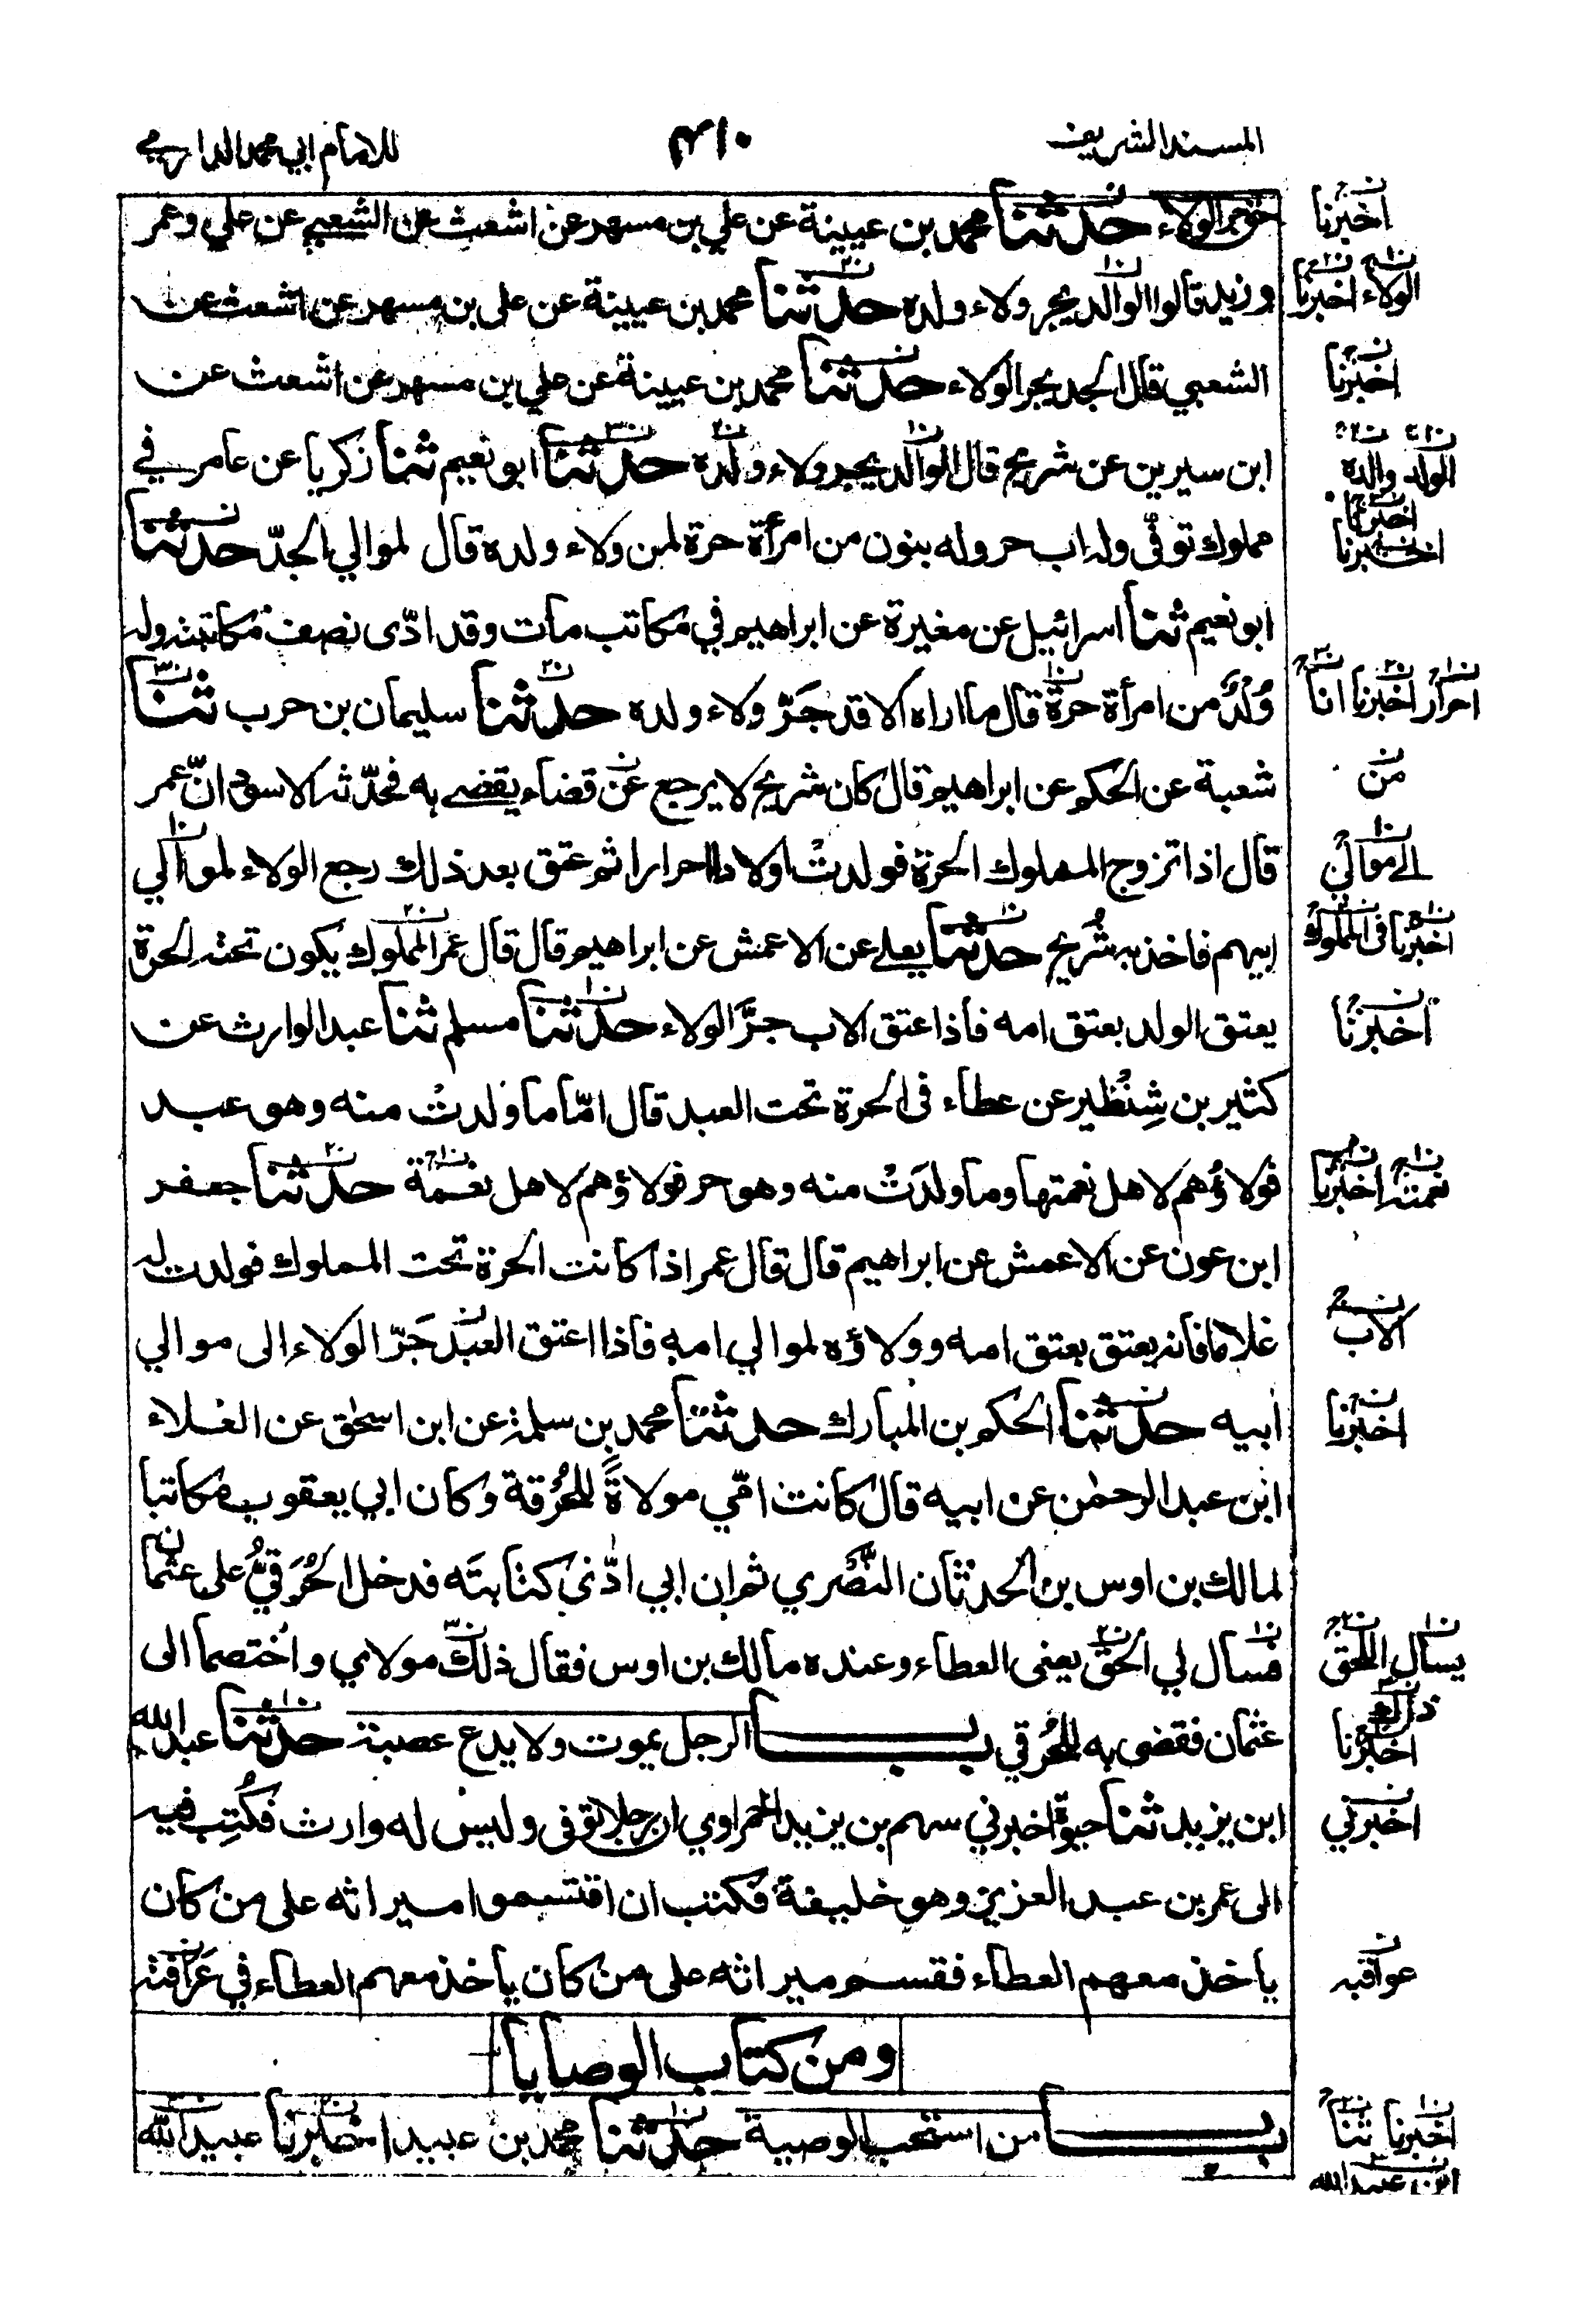 المسند الشريف
٤١٠
للامام ابي محمد الدارمي
حق جر الولاء حدثنا محمد بن عيينة عن علي بن مسهر عن اشعث عن الشعبي عن علي وعمر
وزيد قالوا الوالد يجر ولاء ولده حدثنا محمد بن عيينة عن علي بن مسهر عن اشعث عن
الشعبي قال الجد يجر الولاء حدثنا محمد بن عيينة عن علي بن مسهر عن اشعث عن
ابن سيرين عن شريح قال الوالد يجر ولاء ولده حدثنا ابو نعيم ثنا زكريا عن عامر في
مملوك توفّي وله اب حر وله بنون من امرأة حرة لمن ولاء ولده قال لموالي الجدّ حدثنا
ابو نعيم ثنا اسرائيل عن مغيرة عن ابراهيم في مكاتب مات وقد ادّى نصف مكاتبته وله
وُلْدٌ من امرأة حرة قال ما اراه الا قد جَرّ ولاء ولده حدثنا سليمان بن حرب ثنا
شعبة عن الحكم عن ابراهيم قال كان شريح لا يرجع عن قضاء يقضي به فحدّثه الاسود انّ عمر
قال اذا تزوج المملوك الحرة فولدتْ اولادا احرارا ثم عتق بعد ذلك رجع الولاء لموالي
ابيهم فاخذ به شُريح حدثنا يعلى عن الاعمش عن ابراهيم قال قال عمر المملوك يكون تحته الحرة
يعتق الولد بعتق امه فاذا عتق الاب جرَّ الولاء حدثنا مسلم ثنا عبد الوارث عن
كثير بن شِنْظير عن عطاء في الحرة تحت العبد قال امّا ما ولدتْ منه وهو عبد
فولاؤُهم لاهل نعمتها وما ولدَتْ منه وهو حر فولاؤهم لاهل نعمة حدثنا جعفر
ابن عون عن الاعمش عن ابراهيم قال قال عمر اذا كانت الحرة تحت المملوك فولدت له
غلاما فانه يعتق بعتق امه وولاؤه لموالي امه فاذا اعتق العبد جَرّ الولاء الى موالي
ابيه حدثنا الحكم بن المبارك حدثنا محمد بن سلمة عن ابن اسحٰق عن العلاء
ابن عبد الرحمٰن عن ابيه قال كانت امّي مولاةً للحُرقة وكان ابي يعقوب مكاتبا
لمالك بن اوس بن الحدثان النَّصْري ثم ان ابي ادّى كتابتَه فدخل الحُرَقيُّ على عثمان
فسال لي الحقّ يعنى العطاء وعنده مالك بن اوس فقال ذلك مولاي واختصما الى
عثمان فقضى به للحُرقي باب الرجل يموت ولا يدع عصبة حدثنا عبد الله
ابن يزيد ثنا حيوة اخبرني سهم بن يزيد الحمراوي ان رجلا توفى وليس له وارث فكُتِب فيه
الى عمر بن عبد العزيز وهو خليفة فكتب ان اقتسموا ميراثه على من كان
ياخذ معهم العطاء فقسم ميراثه على من كان ياخذ معهم العطاء في عَرَافته
ومن كتاب الوصايا
باب من استحب الوصية حدثنا محمد بن عبيد اخبرنا عبيد الله
اخبرنا
الولاء اخبرنا
اخبرنا
الولد والده
اخبرنا
اخبرنا
احرار اخبرنا انا
من
الى موالي
اخبرنا في المملوك
اخبرنا
نعمته اخبرنا
الاب
اخبرنا
يسال اللحق
ذاك
اخبرنا
اخبرني
عواقبه
اخبرنا ثنا
ابن عبيد الله